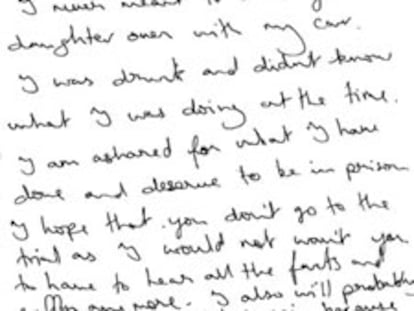 I never meant to
daughter over with my car.
I was drunk and didn't know
what I was doing at the time.
I am ashamed for what I have
done and deserve to be in prison
I hope that you don't go to the
trial as I would not want you
to have to hear all the facts and
any more. I also will probably
because